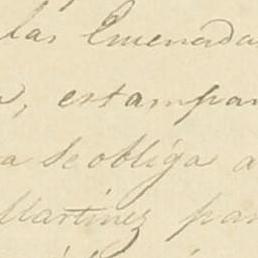 las Emenada
, estampan
a se obliga a
Martinez par